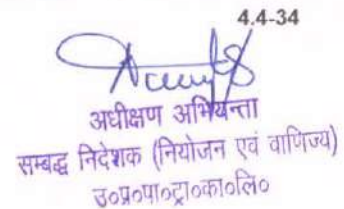 4.4-34
अधीक्षण अभियन्ता
सम्बद्ध निदेशक (नियोजन एवं वाणिज्य)
उ०प्र०पा०ट्रा०का०लि०